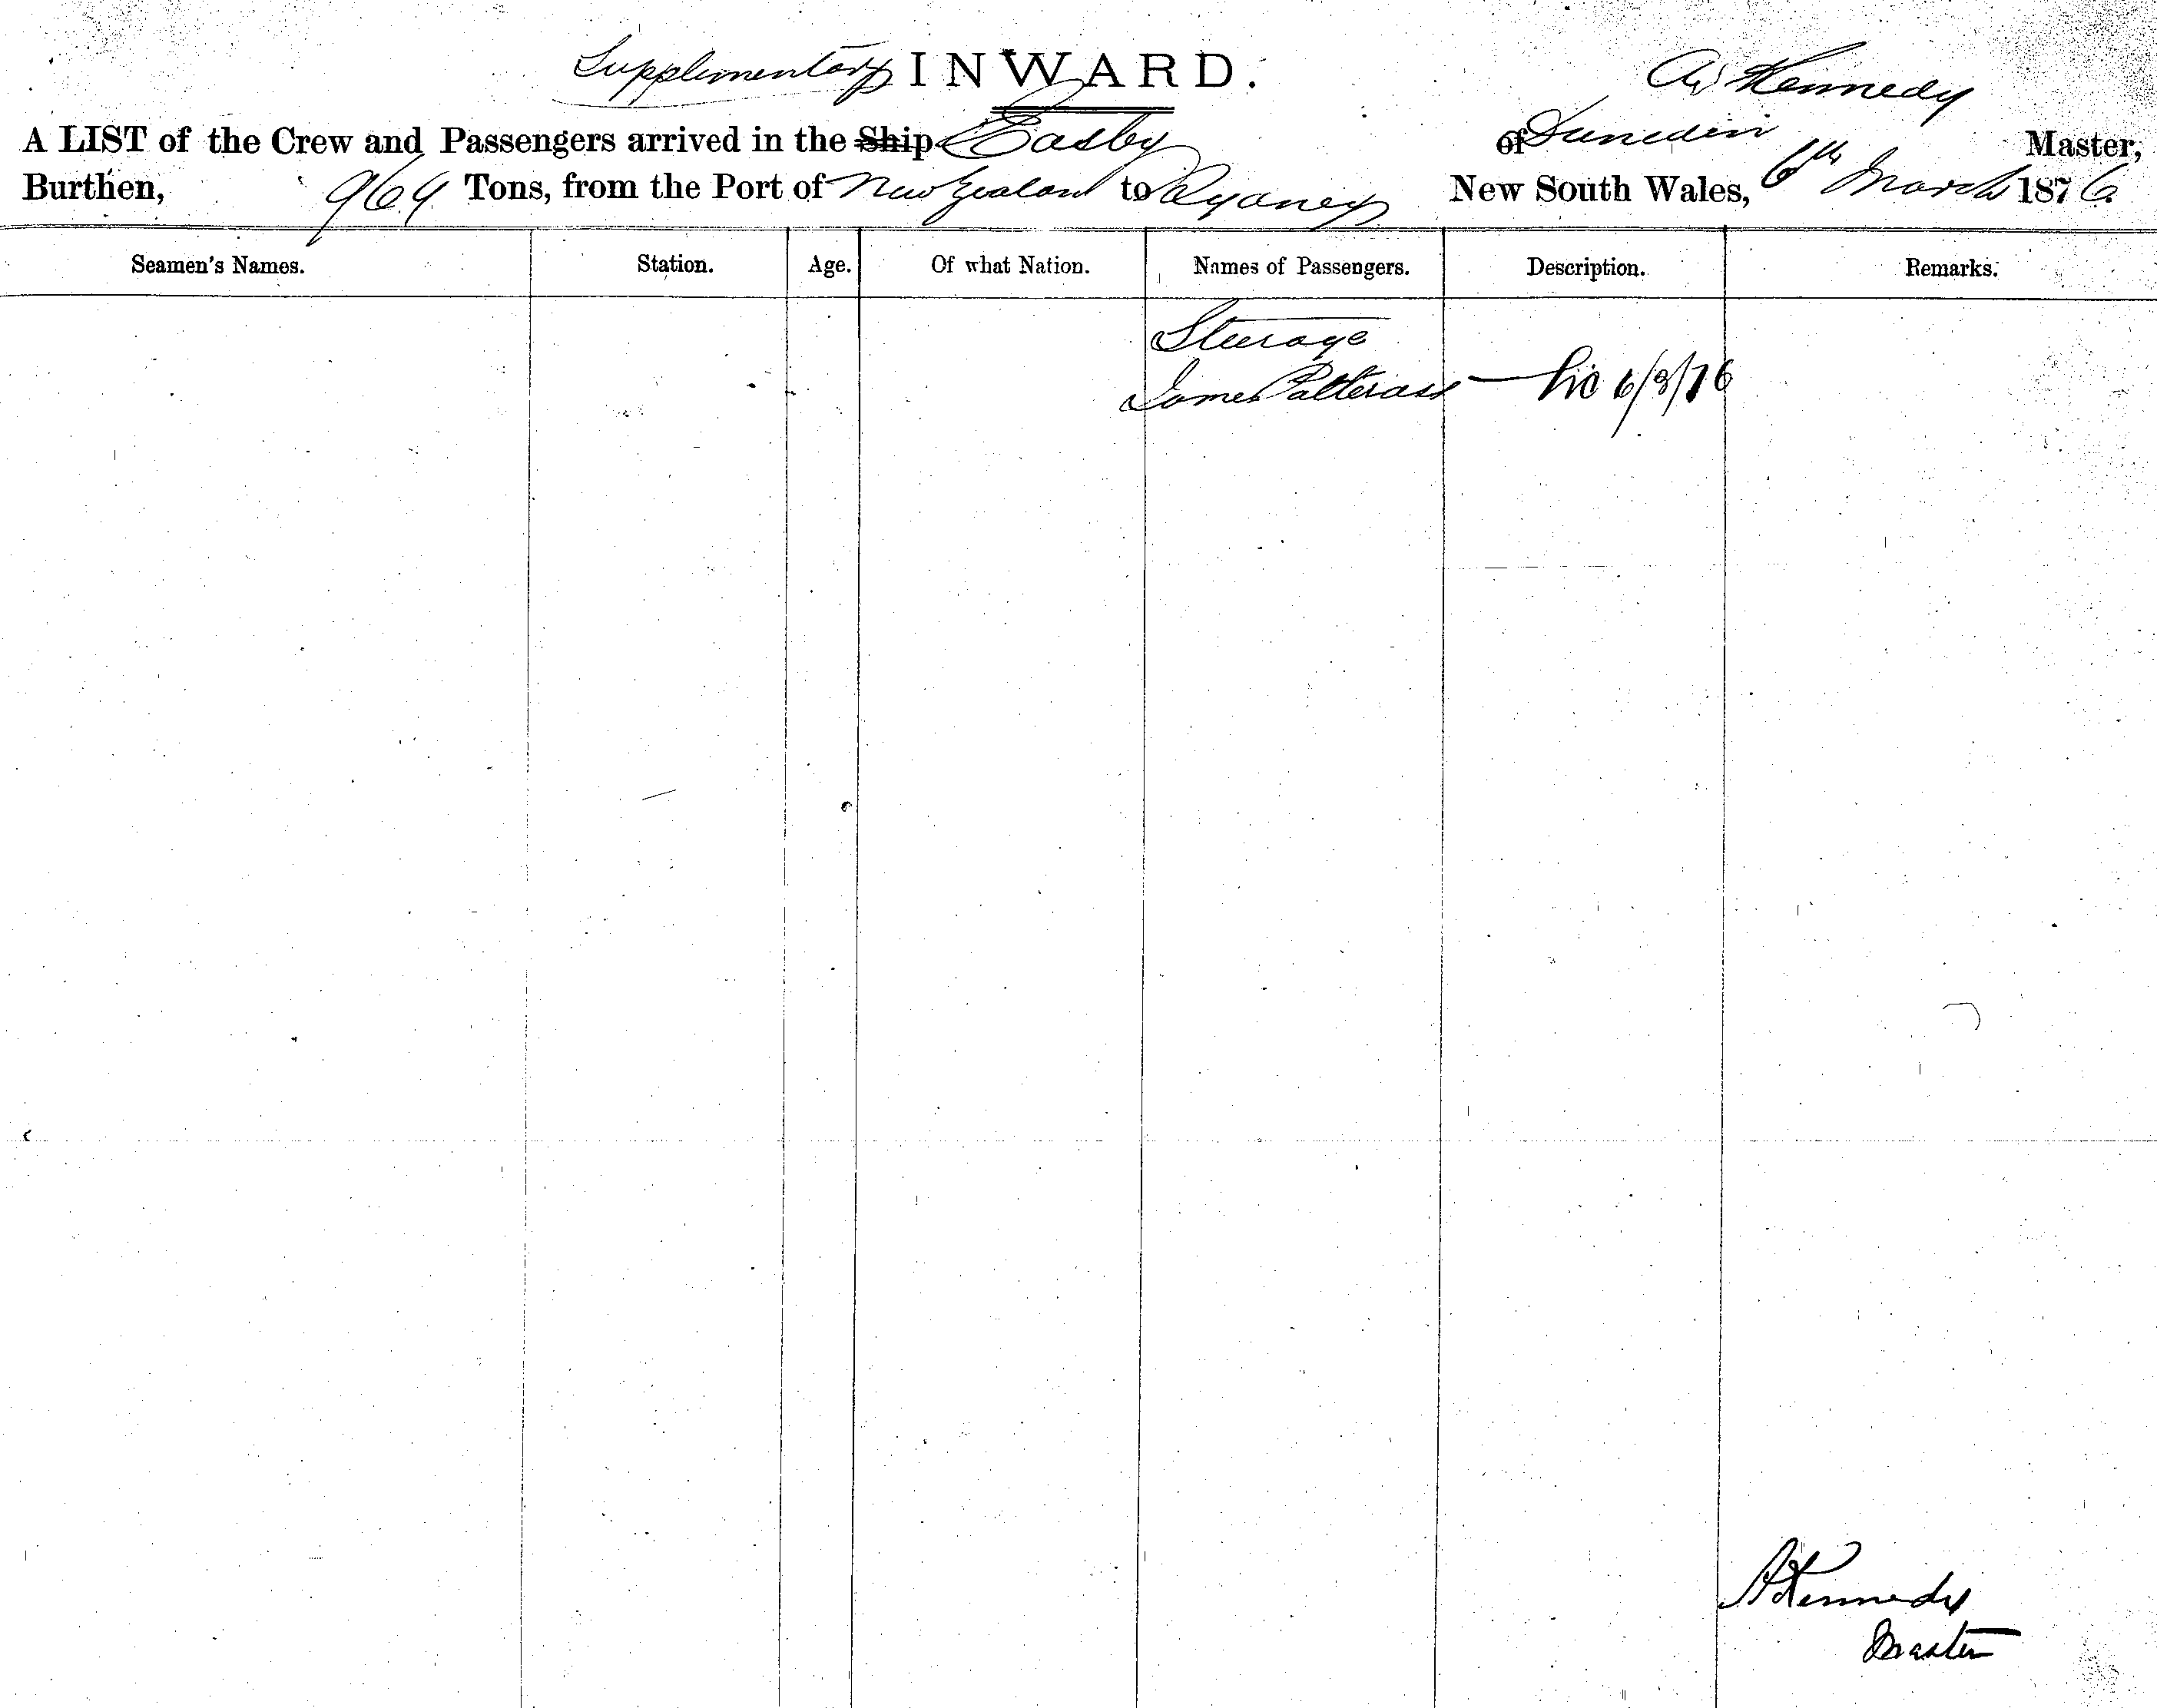 Supplimentary INWARD. A Kennedy
A LIST of the Crew and Passengers arrived in the Ship Easby of Dunedin Master,
Burthen, 969 Tons, from the Port of New Zealand to Sydney New South Wales, 6th March 1876
Seamen's Names. Station. Age. Of what Nation. Names of Passengers. Description. Remarks.
Steerage
James Patterson 6/3/76
A Kennedy
Master